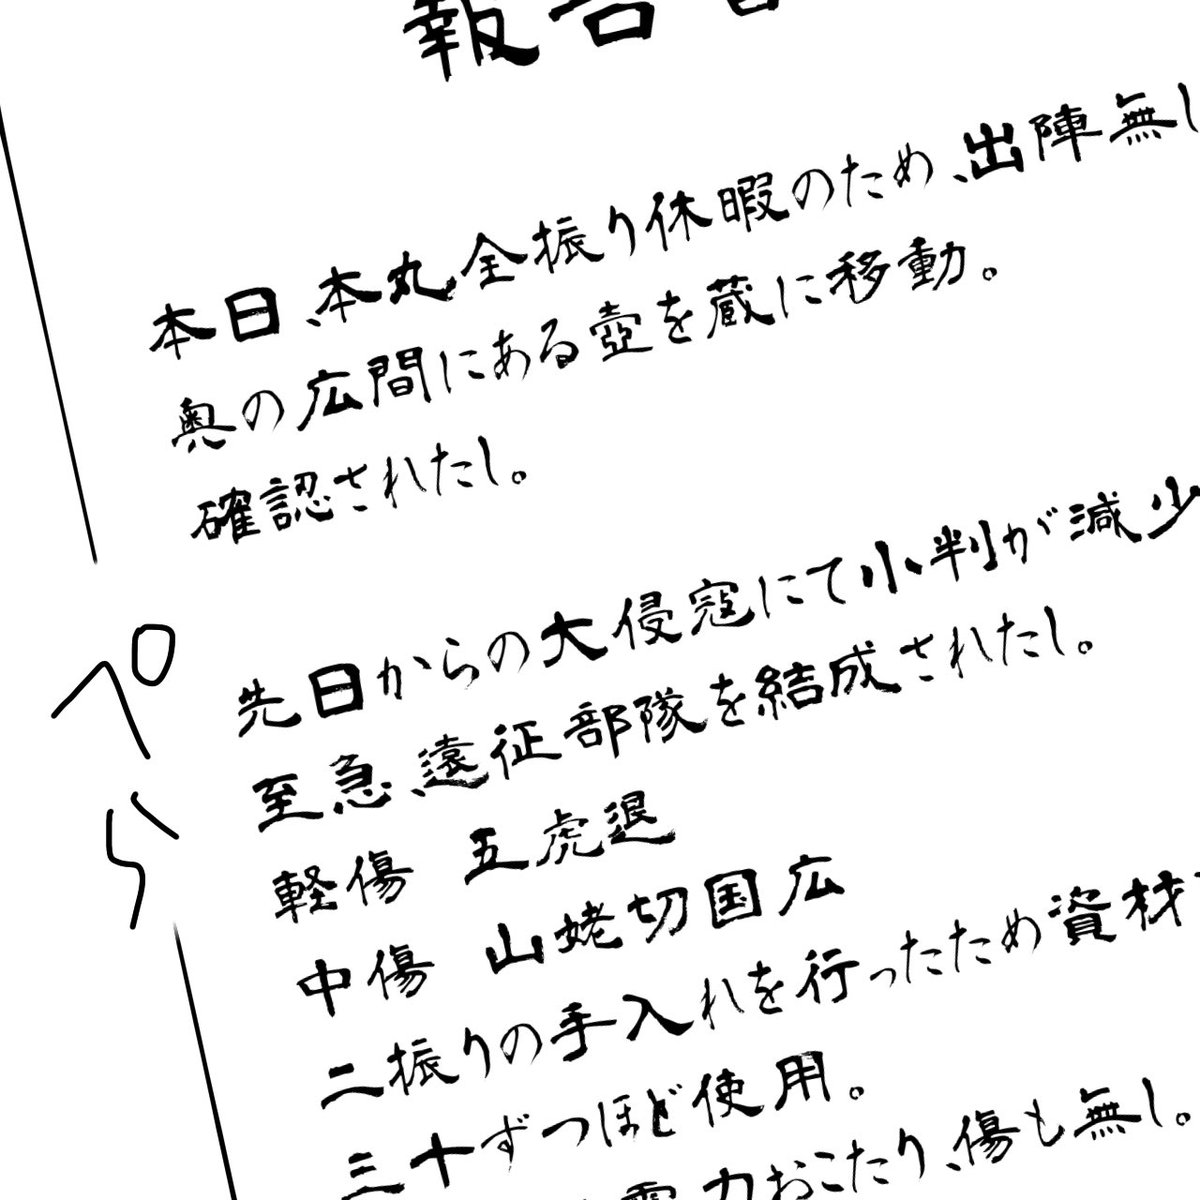 報告書
本日、本丸全振り休暇のため、出陣無し
奥の広間にある壺を蔵に移動。
確認されたし。
先日からの大侵寇にて小判が減少
至急、遠征部隊を結成されたし。
軽傷 五虎退
中傷 山姥切国広
二振りの手入れを行ったため資材
三十ずつほど使用。
電力おこたり、傷も無し。
ペら